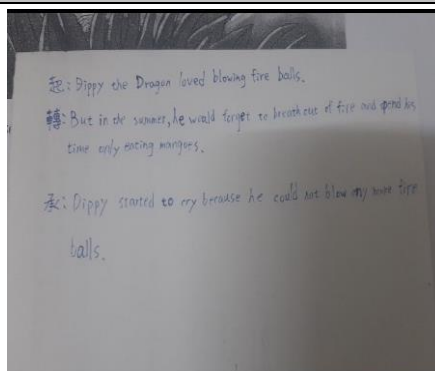 起: Dippy the Dragon loved blowing fire balls.
轉: But in the summer, he would forget to breath out of fire and spend his
time only eating mangoes.
承: Dippy started to cry because he could not blow any more fire
balls.